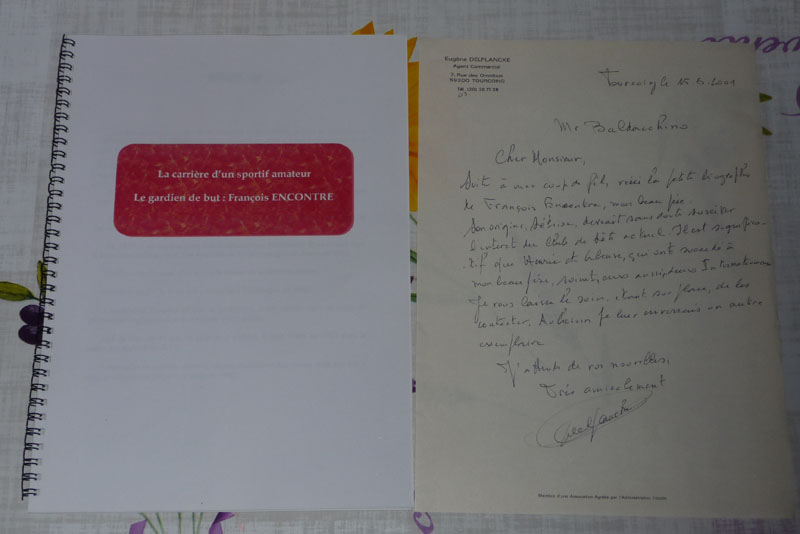 La carrière d'un sportif amateur
Le gardien de but : François ENCONTRE
Eugène DELPLANCKE
Agent Commercial
7, Rue des Omnibus
59200 TOURCOING
Tourcoing le 15.5.2001
Mr Baldacchino
Cher Monsieur,
Suite à mon coup de fil, voici la petite biographie
de François Encontre, mon beau père.
Son origine, Sétoise, devrait sans doute susciter
l'intérêt du Club de Sète actuel. Il est significa-
tif que et qui ont succédé à
mon beau père, soient, eux aussi, devenus Internationaux
Je vous laisse le soin, étant sur place, de les
contacter. Au besoin je leur enverrais un autre
exemplaire
J'attends de vos nouvelles,
Très amicalement
Membre d'une Association Agréée par l'Administration Fiscale